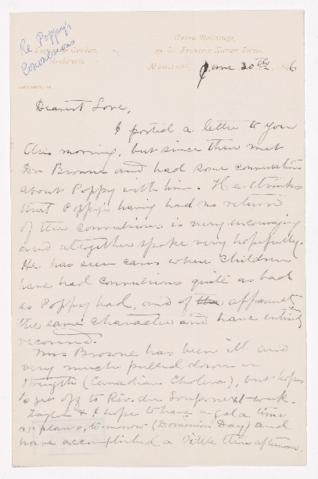 Re Poppy's
Convulsions
June 30th, 96
Dearest Love,
I posted a letter to you
this morning, but since then met
Dr Browne and had some conversation
about Poppy with him. He thinks
that Poppy's having had no return
of the convulsions is very encouraging
and altogether spoke very hopefully.
He has seen cases where children
have had convulsions quite as bad
as Poppy had, and of the apparently
the same character and have entirely
recovered.
Mrs Browne has been ill and
very much pulled down in
strength (Canadian Cholera), but hopes
to get off to Riv. du Loup next week.
Taylor & I hope to have a good time
at plans, to-morrow (Dominion Day) and
have accomplished a little this afternoon.